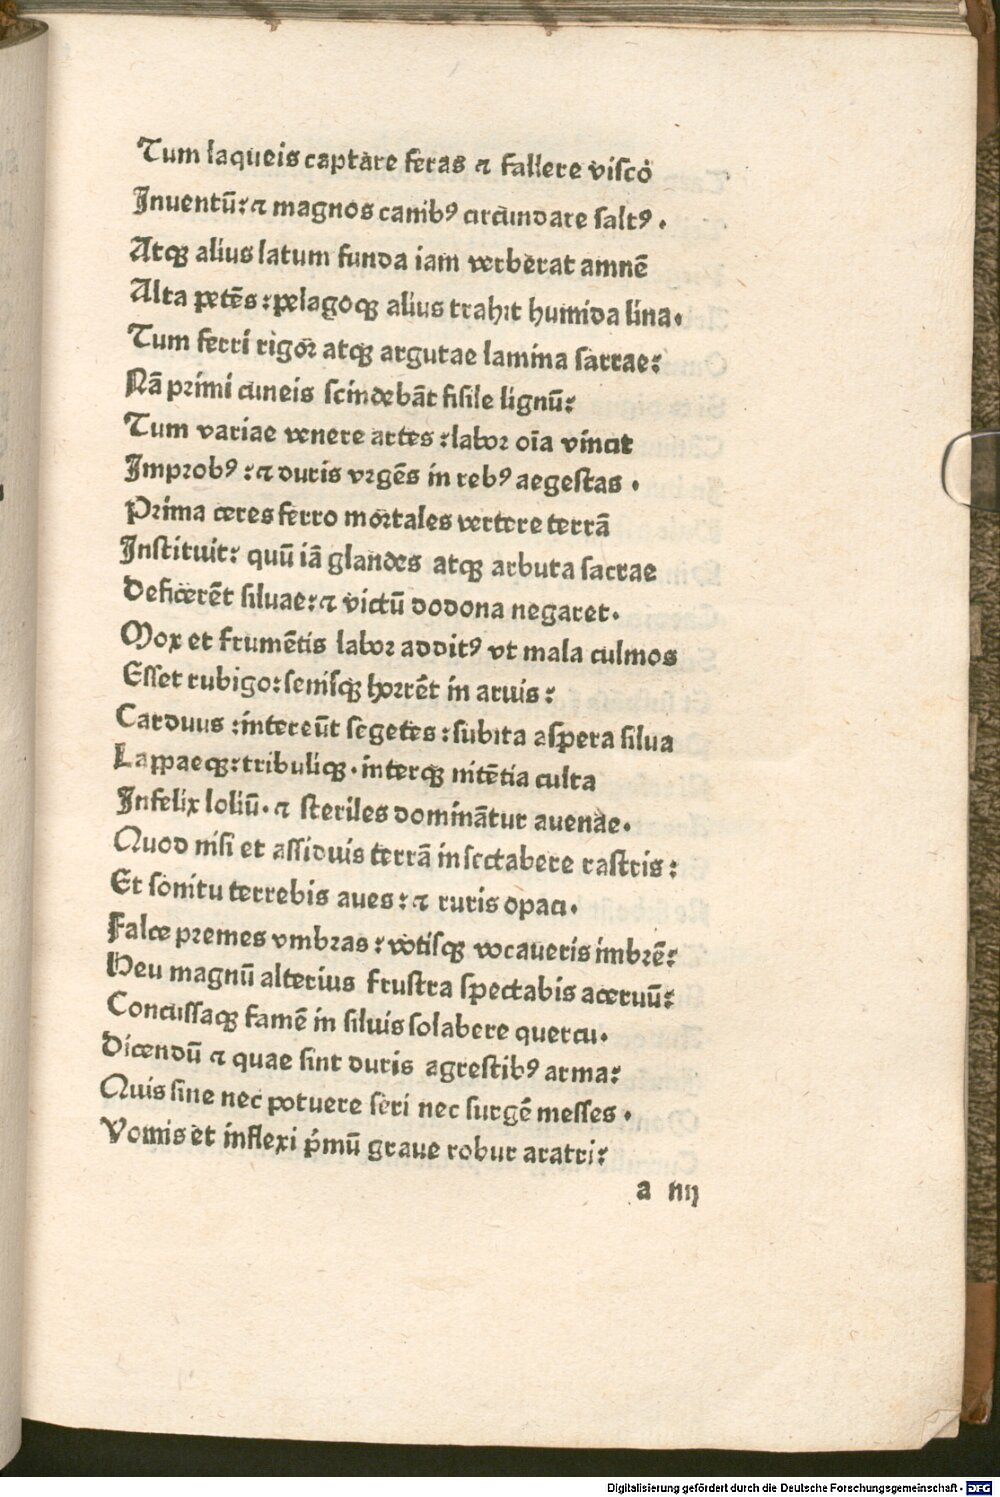 Tum laqueis captare feras ⁊ fallere visco
Inuentū: ⁊ magnos canibꝰ circūndare saltꝰ .
Atqꝫ alius latum funda iam verberat amnē
Alta petēs : pelagoqꝫ alius trahit humida lina.
Tum ferri rigor atqꝫ argutae lamina sarrae:
Nā primi cuneis scindebāt fisile lignū:
Tum variae venere artes : labor oīa vincit
Improbꝰ : ⁊ duris vrgēs in rebꝰ aegestas .
Prima ceres ferro mortales vertere terrā
Instituit: quū iā glandes atqꝫ arbuta sacrae
Deficerēt siluae: ⁊ victū dodona negaret.
Mox et frumētis labor additꝰ vt mala culmos
Esset rubigo: senisqꝫ horrēt in aruis :
Carduus : intereūt segetes : subita aspera silua
Lappaeqꝫ: tribuliqꝫ . interqꝫ nitētia culta
Infelix loliū. ⁊ steriles domināntur auenae.
Quod nisi et assiduis terrā insectabere rastris :
Et sonitu terrebis aues : ⁊ ruris opaci.
Falce premes vmbras : votisqꝫ vocaueris imbrē:
Heu magnū alterius frustra spectabis aceruū:
Concussaqꝫ famē in siluis solabere quercu.
Dicendū ⁊ quae sint duris agrestibꝰ arma:
Quis sine nec potuere seri nec surgē messes .
Vomis et inflexi p̄mū graue robur aratri:
a iiij
Digitalisierung gefördert durch die Deutsche Forschungsgemeinschaft - DFG